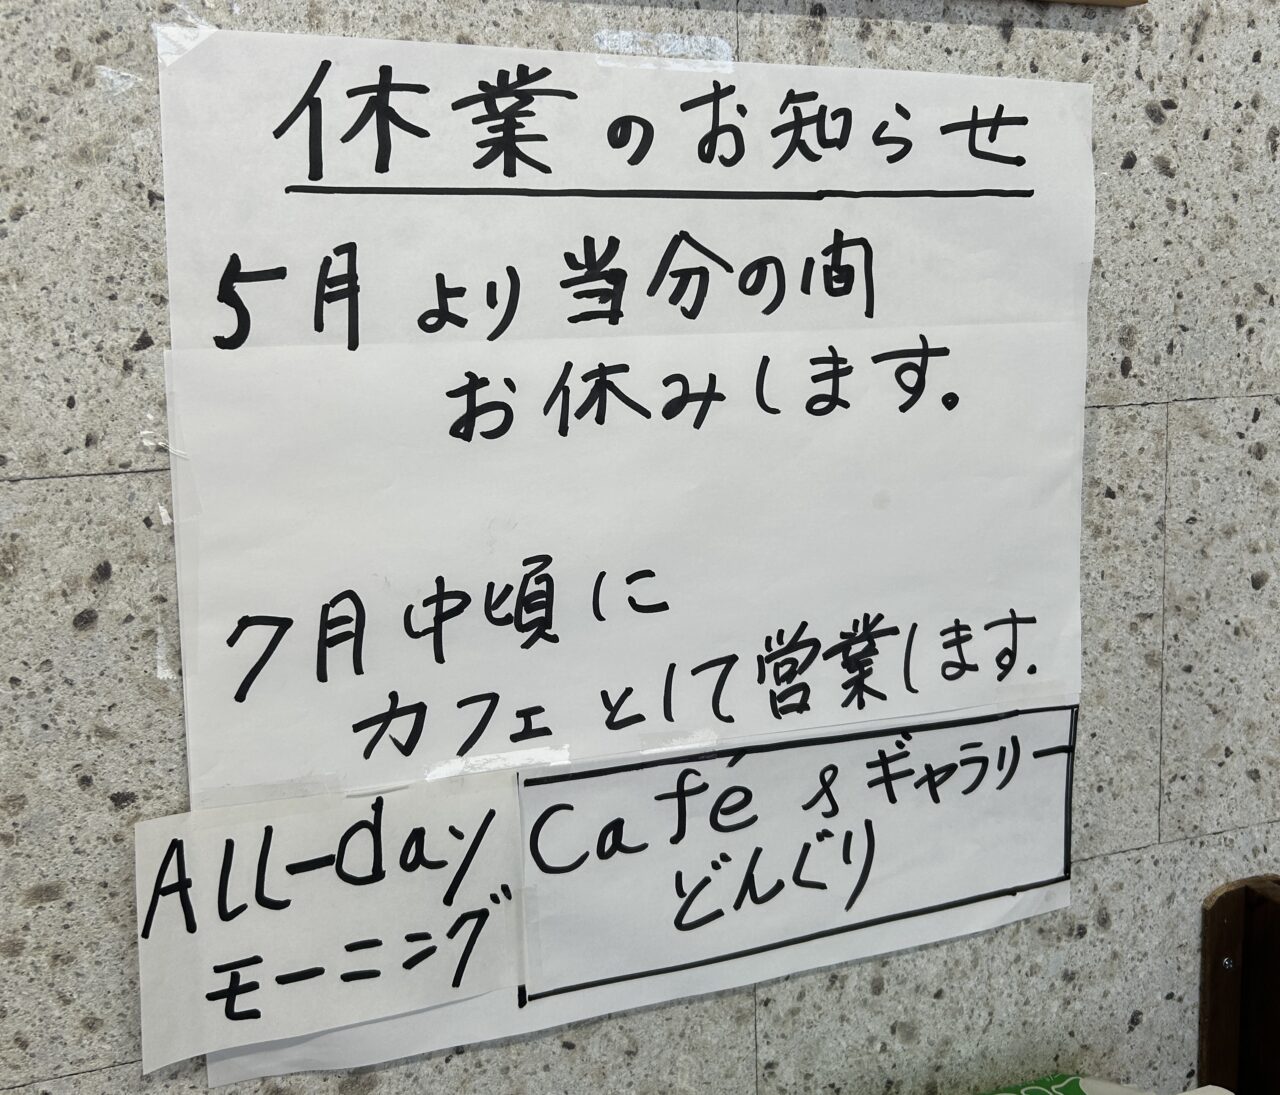 休業のお知らせ
5月より当分の間
お休みします。
7月中頃に
カフェとして営業します.
All-day
モーニング
Café &ギャラリー
どんぐり